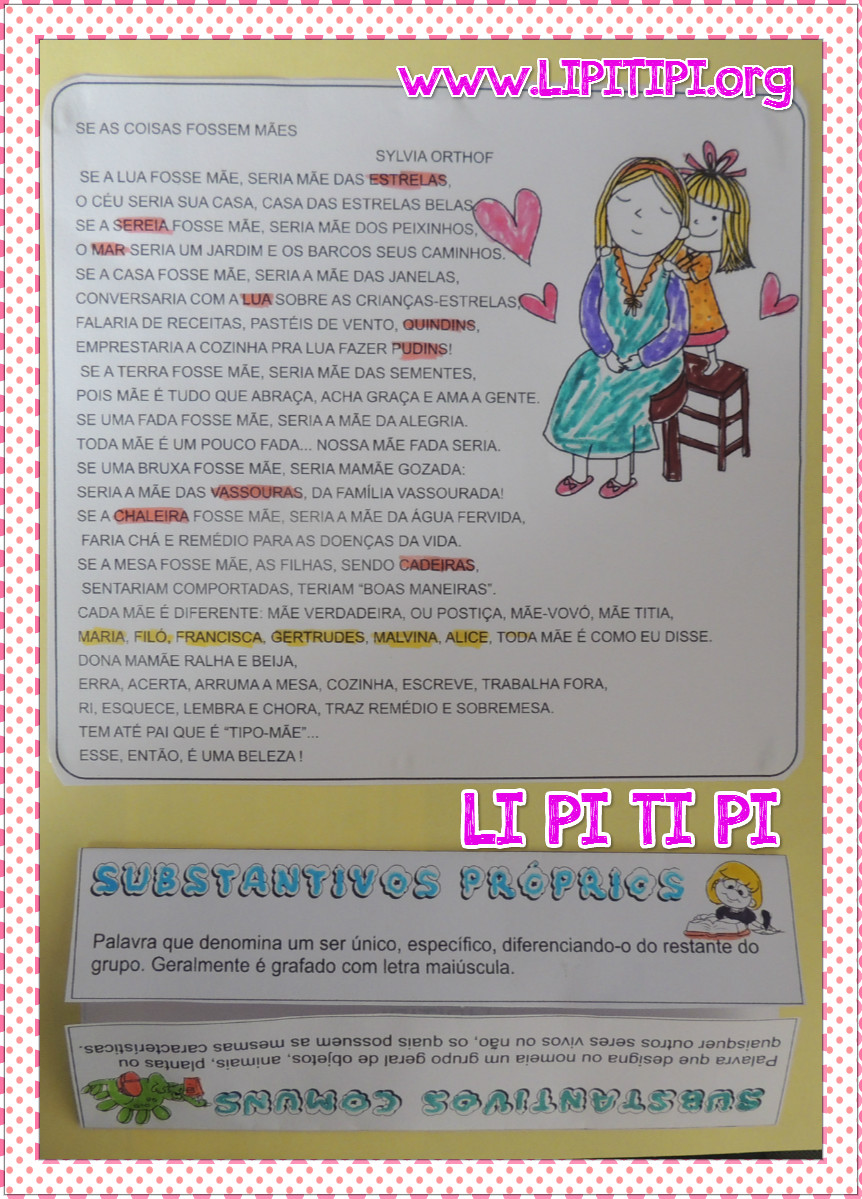 www.LIPITIPI.org
SE AS COISAS FOSSEM MÃES
SYLVIA ORTHOF
SE A LUA FOSSE MÃE, SERIA MÃE DAS ESTRELAS,
O CÉU SERIA SUA CASA, CASA DAS ESTRELAS BELAS.
SE A SEREIA FOSSE MÃE, SERIA MÃE DOS PEIXINHOS,
O MAR SERIA UM JARDIM E OS BARCOS SEUS CAMINHOS.
SE A CASA FOSSE MÃE, SERIA A MÃE DAS JANELAS,
CONVERSARIA COM A LUA SOBRE AS CRIANÇAS-ESTRELAS,
FALARIA DE RECEITAS, PASTÉIS DE VENTO, QUINDINS,
EMPRESTARIA A COZINHA PRA LUA FAZER PUDINS!
SE A TERRA FOSSE MÃE, SERIA MÃE DAS SEMENTES,
POIS MÃE É TUDO QUE ABRAÇA, ACHA GRAÇA E AMA A GENTE.
SE UMA FADA FOSSE MÃE, SERIA A MÃE DA ALEGRIA.
TODA MÃE É UM POUCO FADA... NOSSA MÃE FADA SERIA.
SE UMA BRUXA FOSSE MÃE, SERIA MAMÃE GOZADA:
SERIA A MÃE DAS VASSOURAS, DA FAMÍLIA VASSOURADA!
SE A CHALEIRA FOSSE MÃE, SERIA A MÃE DA ÁGUA FERVIDA,
FARIA CHÁ E REMÉDIO PARA AS DOENÇAS DA VIDA.
SE A MESA FOSSE MÃE, AS FILHAS, SENDO CADEIRAS,
SENTARIAM COMPORTADAS, TERIAM “BOAS MANEIRAS”.
CADA MÃE É DIFERENTE: MÃE VERDADEIRA, OU POSTIÇA, MÃE-VOVÓ, MÃE TITIA,
MARIA, FILÓ, FRANCISCA, GERTRUDES, MALVINA, ALICE, TODA MÃE É COMO EU DISSE.
DONA MAMÃE RALHA E BEIJA,
ERRA, ACERTA, ARRUMA A MESA, COZINHA, ESCREVE, TRABALHA FORA,
RI, ESQUECE, LEMBRA E CHORA, TRAZ REMÉDIO E SOBREMESA.
TEM ATÉ PAI QUE É “TIPO-MÃE”...
ESSE, ENTÃO, É UMA BELEZA !
LI PI TI PI
SUBSTANTIVOS PRÓPRIOS
Palavra que denomina um ser único, específico, diferenciando-o do restante do
grupo. Geralmente é grafado com letra maiúscula.
SUBSTANTIVOS COMUNS
Palavra que designa ou nomeia um grupo geral de objetos, animais, plantas ou
quaisquer outros seres vivos ou não, os quais possuem as mesmas características.